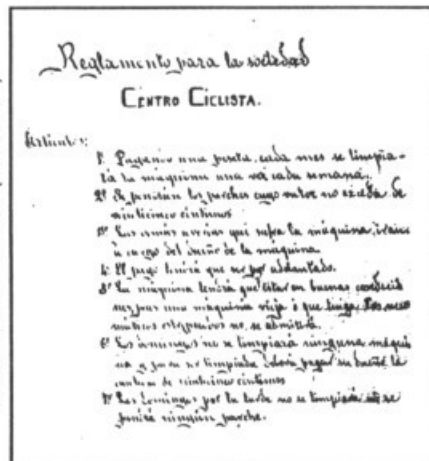 Reglamento para la sociedad
CENTRO CICLISTA.
Artículos:
1º Pagando una peseta cada mes se limpia-
rá la máquina una vez cada semana.
2º Se pondrán los parches cuyo valor no exceda de
veinticinco céntimos
3º Las demás averías que sufra la máquina, irán
á cargo del dueño de la máquina.
4º El pago tendrá que ser por adelantado.
5º La máquina tendrá que estar en buenas condicio
nes pues una máquina vieja ó que tenga los neu
máticos estropeados no se admitirá.
6º Los domingos no se limpiará ninguna máqui
na y para ser limpiada deberá pagar su dueño la
cantidad de veinticinco céntimos
7º Los Domingos por la tarde no se limpiará ni se
pondrá ningún parche.